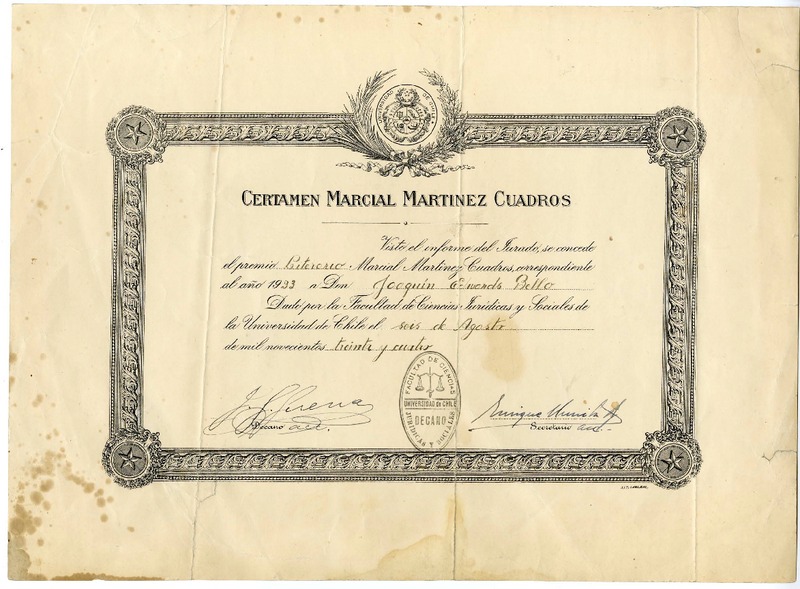 UNIVERSIDAD DE CHILE
CERTAMEN MARCIAL MARTINEZ CUADROS
Visto el informe del Jurado, se concede
el premio Literario Marcial Martinez Cuadros, correspondiente
al año 1933 a Don Joaquin Edwards Bello
Dado por la Facultad de Ciencias Juridicas y Sociales de
la Universidad de Chile el seis de Agosto
de mil novecientos treinta y cuatro
FACULTAD DE CIENCIAS
UNIVERSIDAD de CHILE
DECANO
JURIDICAS Y SOCIALES
Decano acc.
Enrique
Secretario acc.